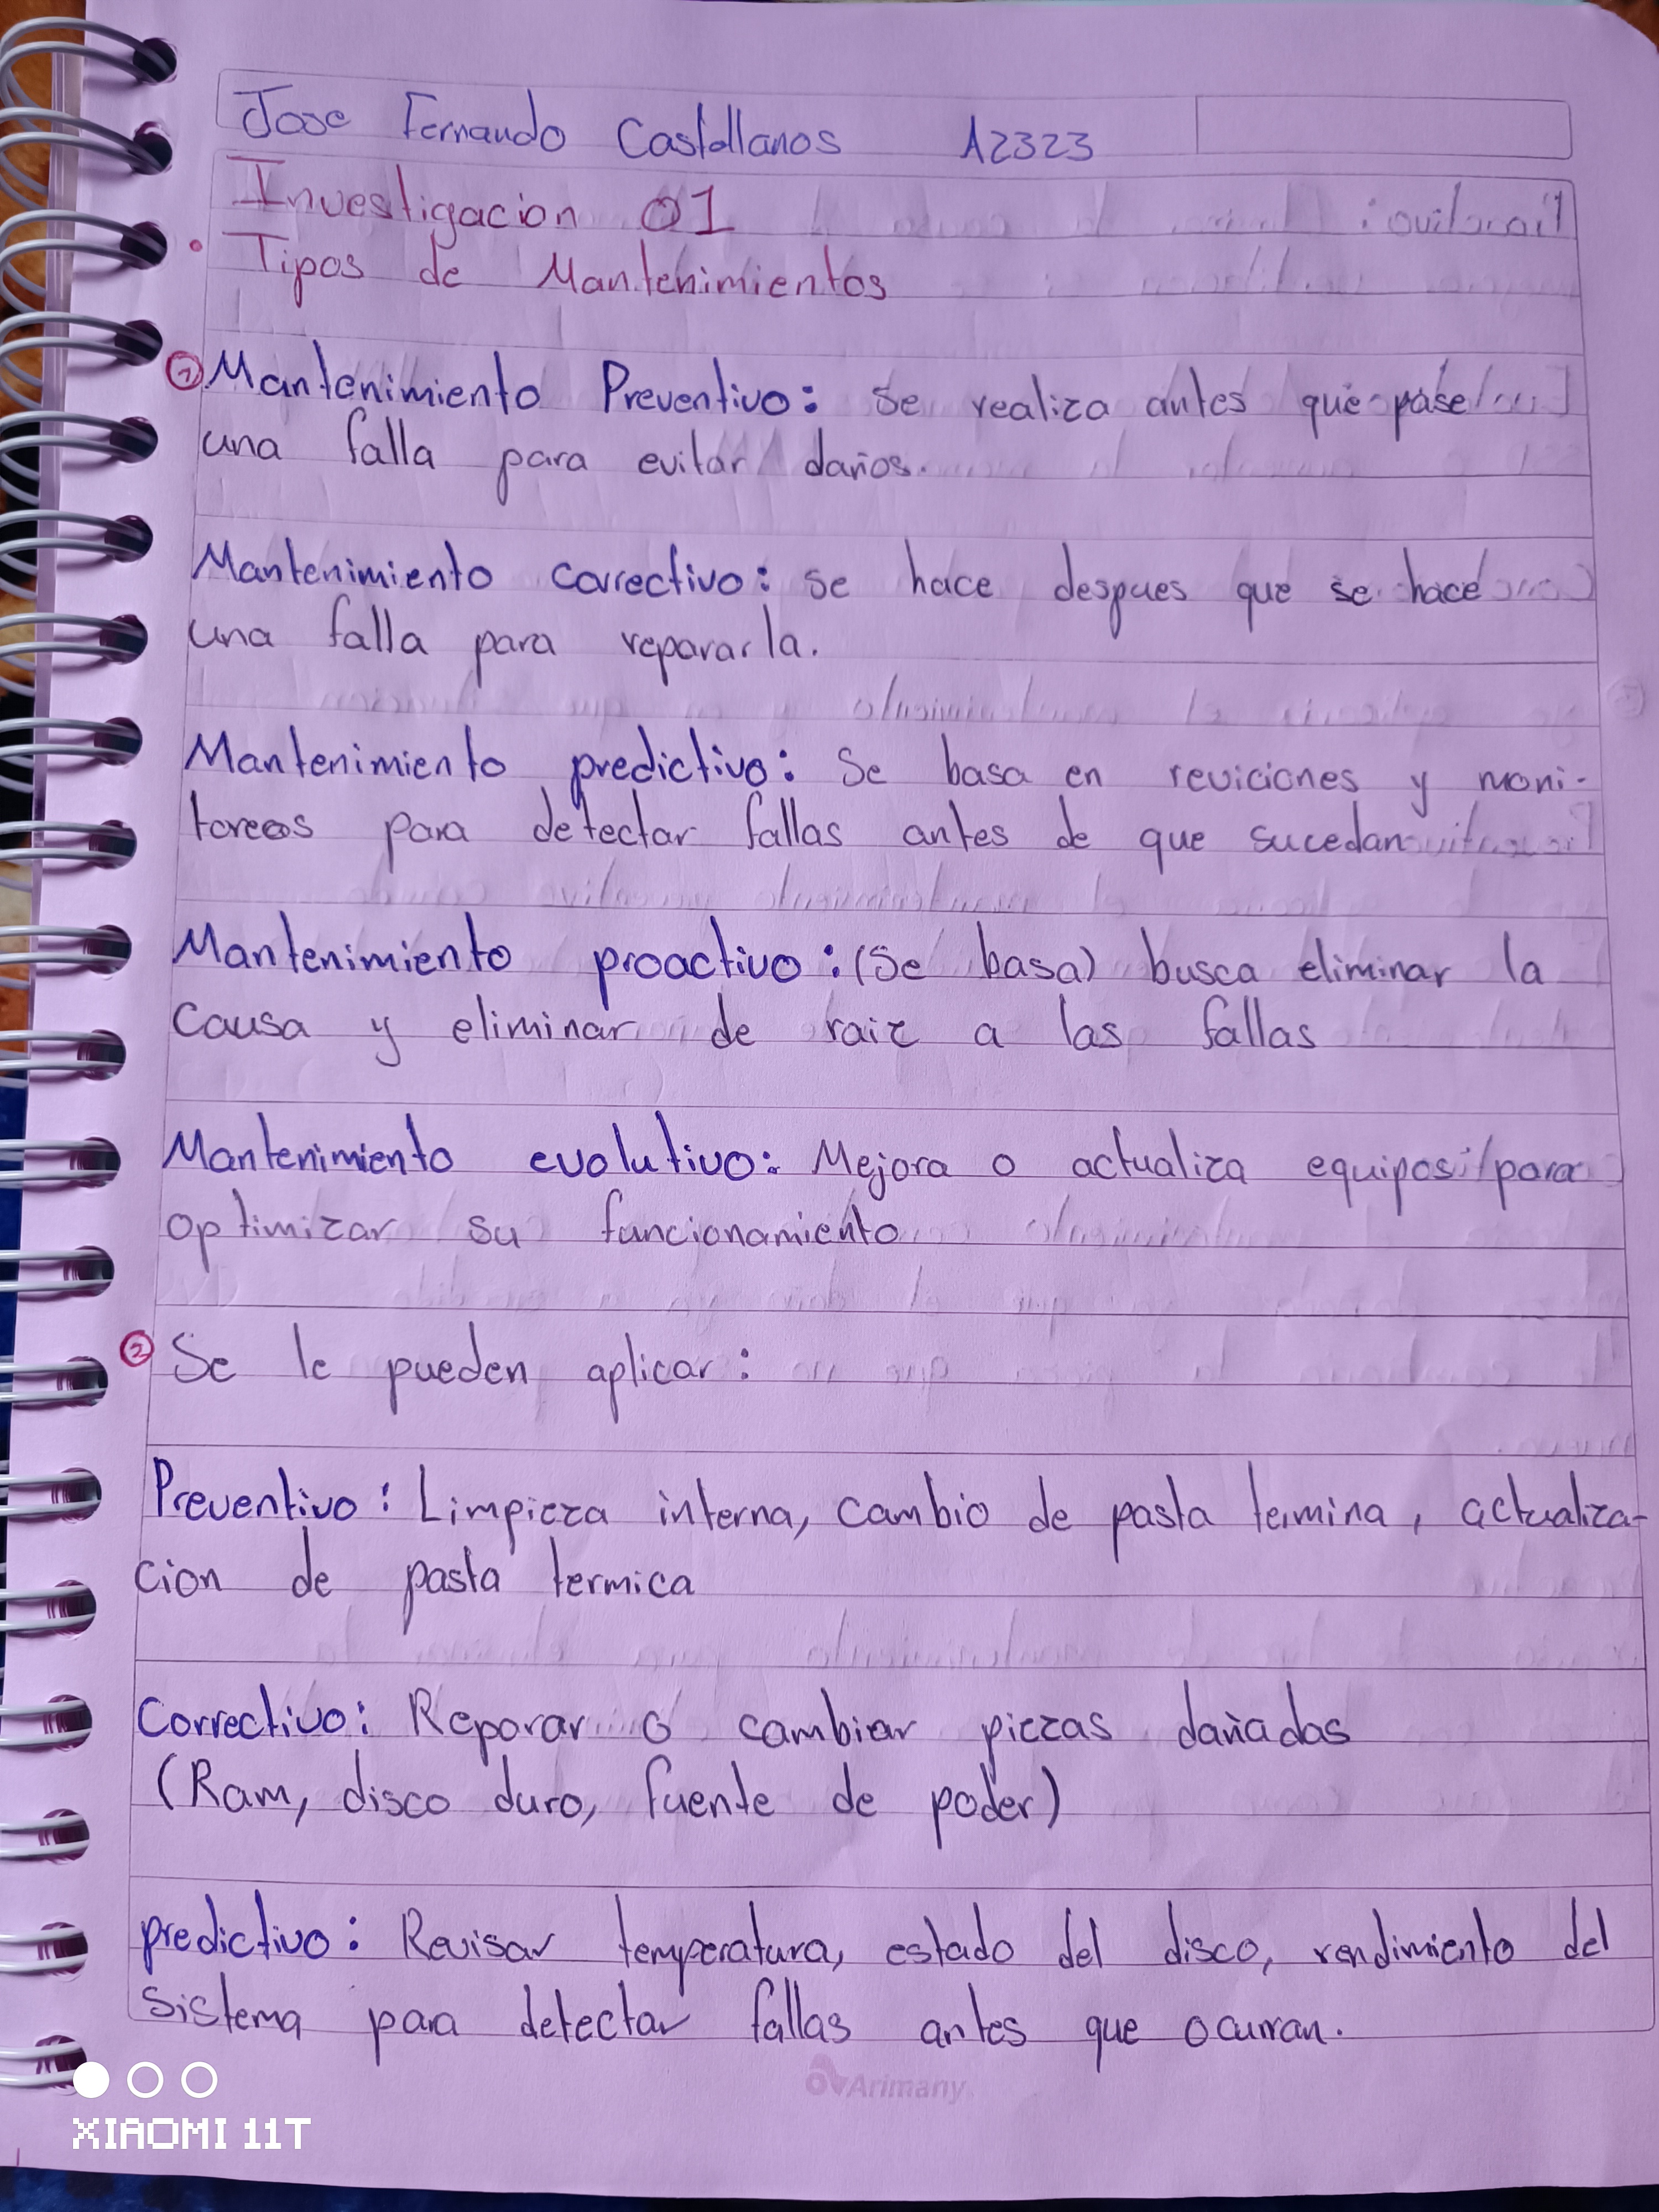 Jose Fernando Castellanos A2323
Investigacion 01
Tipos de Mantenimientos
1 Mantenimiento Preventivo: Se realiza antes que pase
una falla para evitar daños.
Mantenimiento correctivo: Se hace despues que se hace
una falla para repararla.
Mantenimiento predictivo: Se basa en reviciones y moni-
toreos para detectar fallas antes de que sucedan
Mantenimiento proactivo: (Se basa) busca eliminar la
causa y eliminar de raiz a las fallas
Mantenimiento evolutivo: Mejora o actualiza equipos para
optimizar su funcionamiento
2 Se le pueden aplicar:
Preventivo: Limpieza interna, cambio de pasta termina, actualiza-
cion de pasta termica
Correctivo: Reparar o cambiar piezas dañadas
(Ram, disco duro, fuente de poder)
predictivo: Revisar temperatura, estado del disco, rendimiento del
sistema para detectar fallas antes que ocurran.
Arimany
XIAOMI 11T